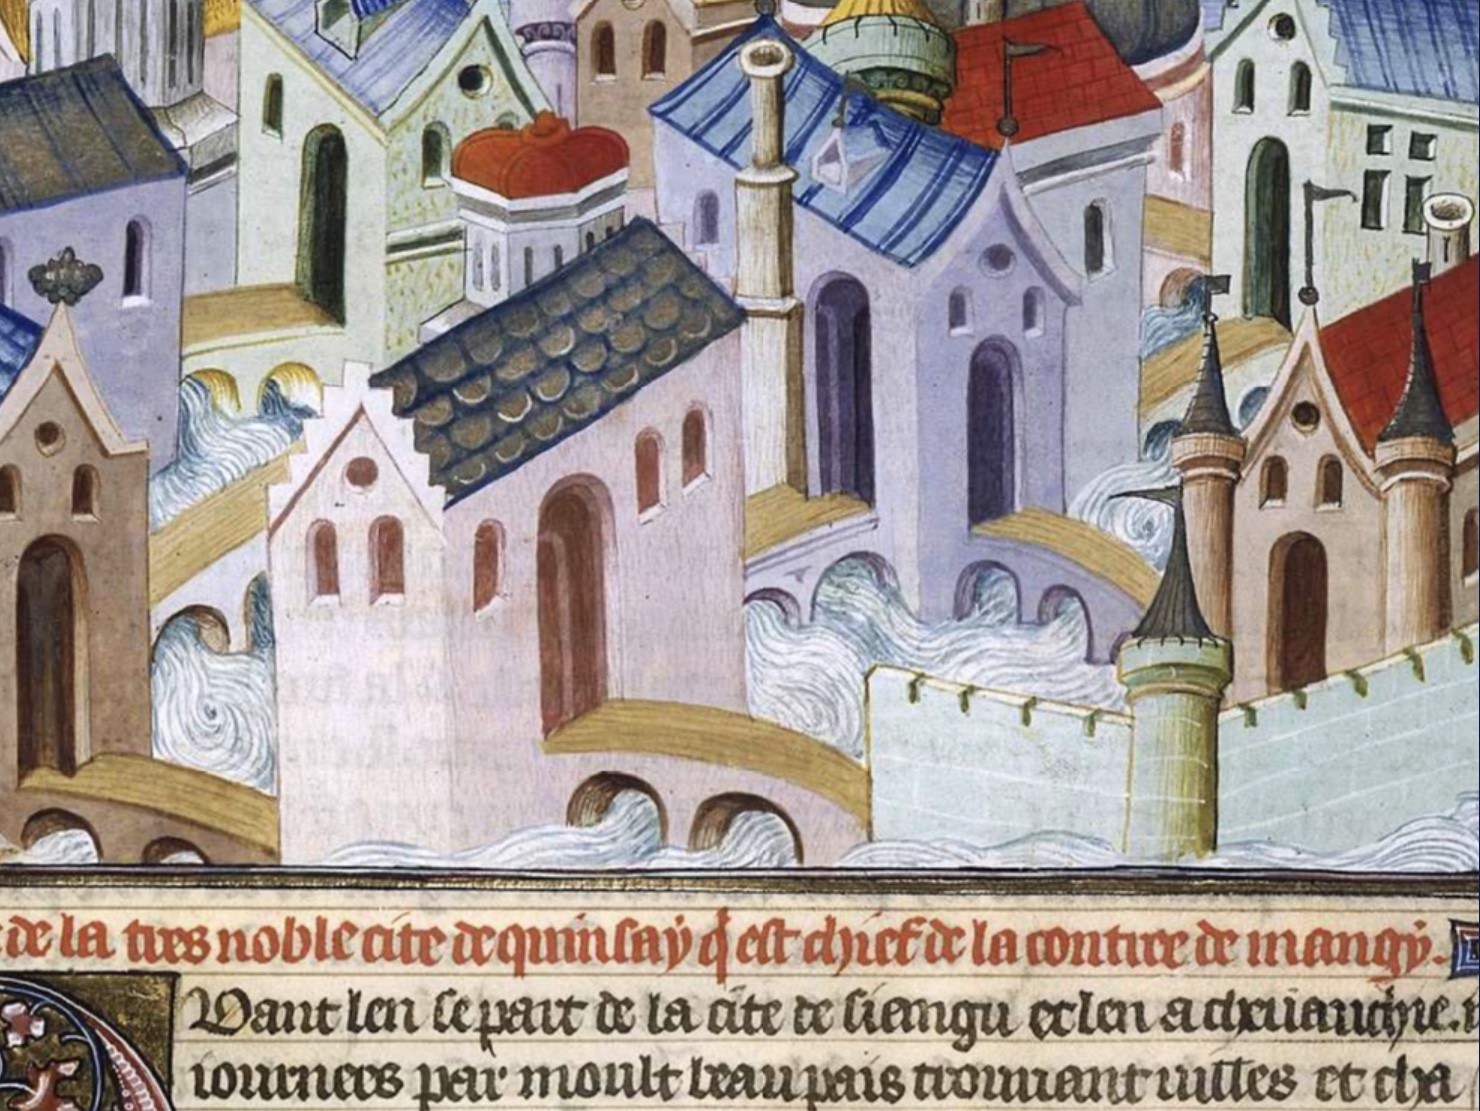 de la tres noble cite de quinsay q̃ est chief de la contree de mangy.
Vant len se part de la cite de siangu et len a cheuauchie
iournees par moult beau pais trouuant uilles et cha